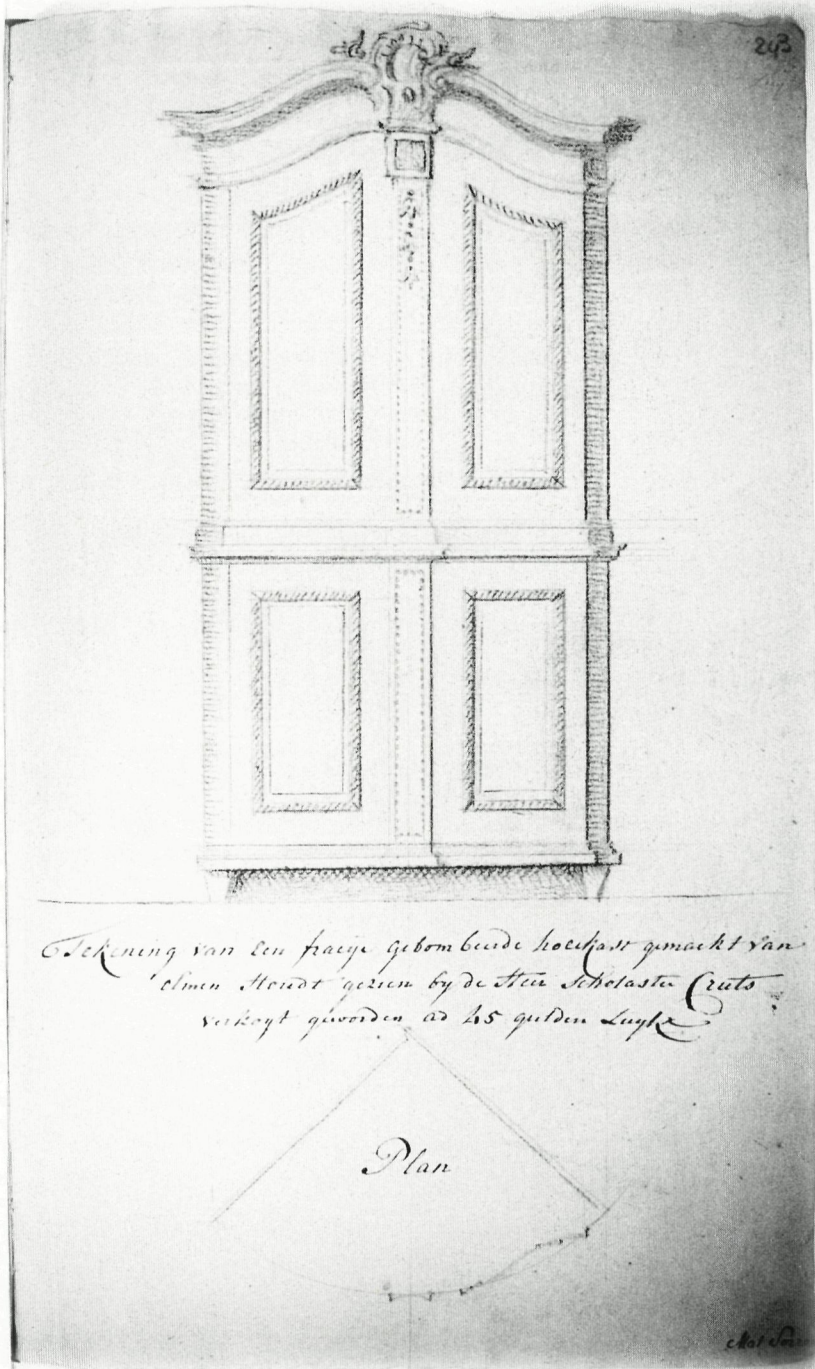 243
Tekening van een fraeije gebombeerde hoekkast gemaekt van
olmen Houdt gezien by de Heer scholaster Cruts
verkogt geworden ad 45 gulden Luyks
Plan
Mat